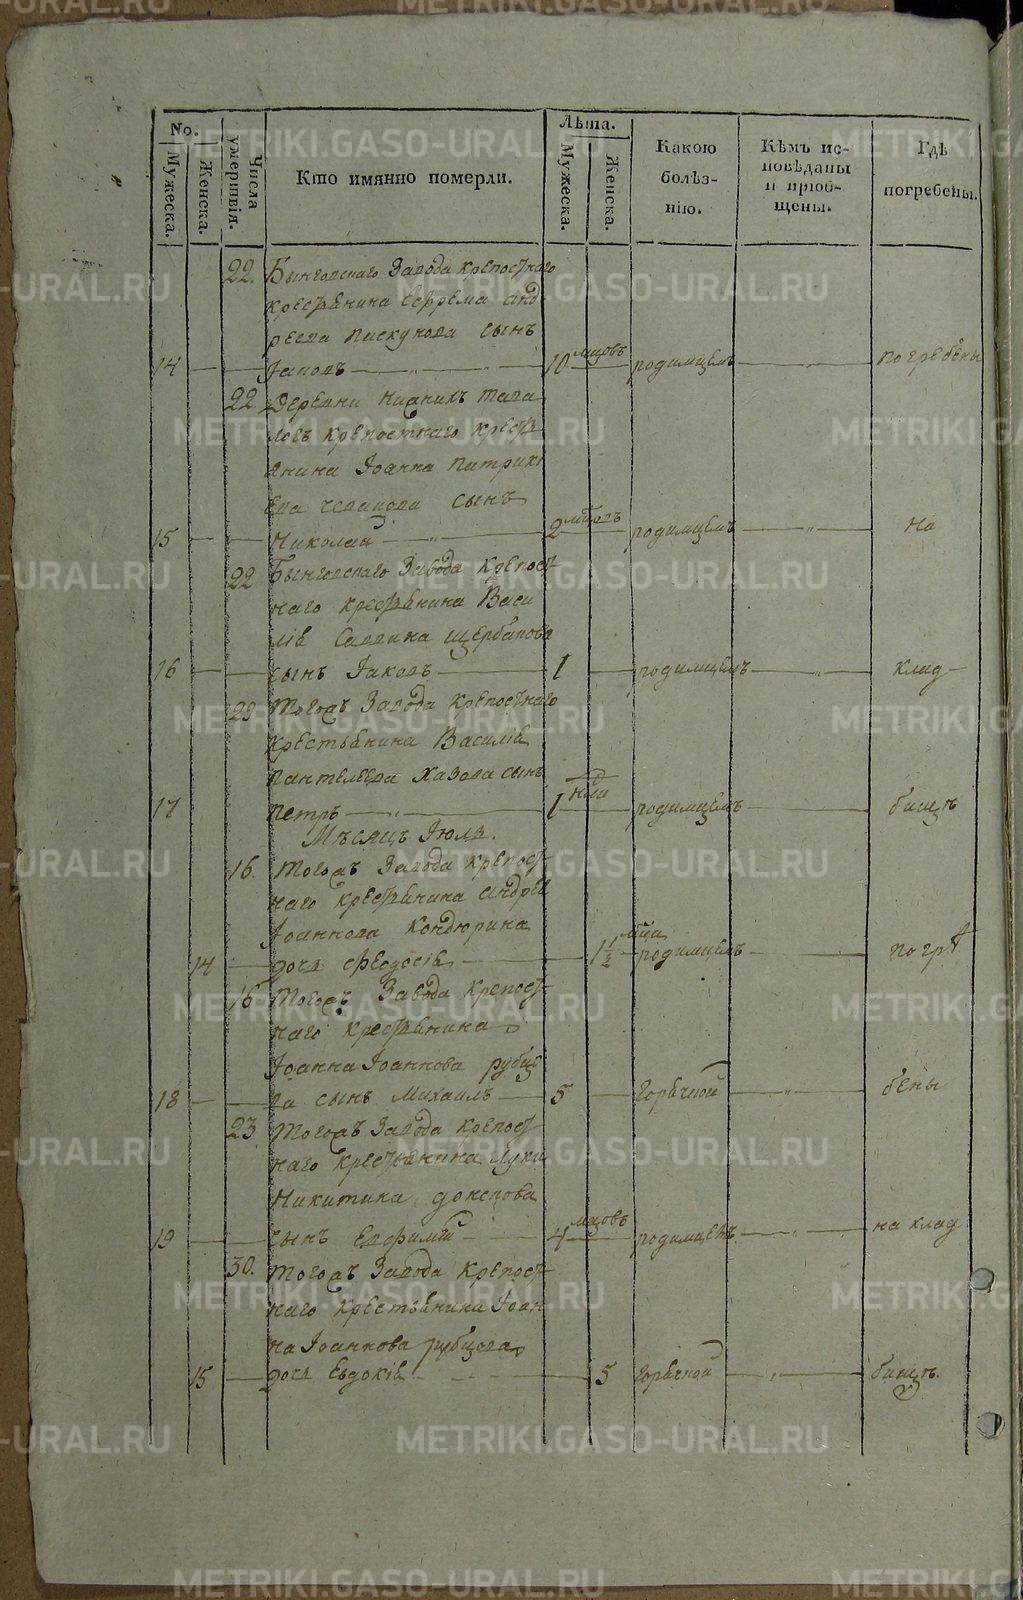 No.
Мужеска.
Женска.
Числа умертвія.
Кто имянно померли.
Лѣта.
Мужеска.
Женска.
Какою болѣз-нію.
Кѣмъ ис-повѣданы и пріоб-щены.
Гдѣ погребены.
22. Бынговскаго Завода крепостнаго
крестьянина Ефрема Анд
реева Пискунова сынъ
14 Іаковъ 10 мцовъ родимцемъ погребены
22 Деревни Нижнихъ Тава
крепостнаго крестья
нина Іоанна Патрик
сынъ
15 Николай 2 родимцемъ на
22 Бынговскаго Завода крепост
наго крестьянина Васи
лія Саввина Щербакова
16 сынъ Іаковъ 1 родимцемъ клад
29 Тогожъ Завода крепостнаго
крестьянина Василія
Пантелеева Хазова сынъ
17 Петръ 1 дня родимцемъ бищѣ
Мѣсяцъ Іюль.
16. Тогожъ Завода крепост
наго крестьянина Андрея
Іоаннова Кондюрина
14 дочь Феодосія 1 1/2 мца родимцемъ погре
16 Тогожъ Завода крепост
наго крестьянина
Іоанна Іоаннова Рубцо
18 ва сынъ Михаилъ 5 горячкой бены
23 Тогожъ Завода крепост
наго крестьянина Луки
Никитина
19 сынъ Евфимій 4 мцовъ родимцемъ на клад
30. Тогожъ Завода крепост
наго крестьянина Іоан
на Іоаннова Рубцова
15 дочь Евдокія 5 горячкой бищѣ.
METRIKI.GASO-URAL.RU